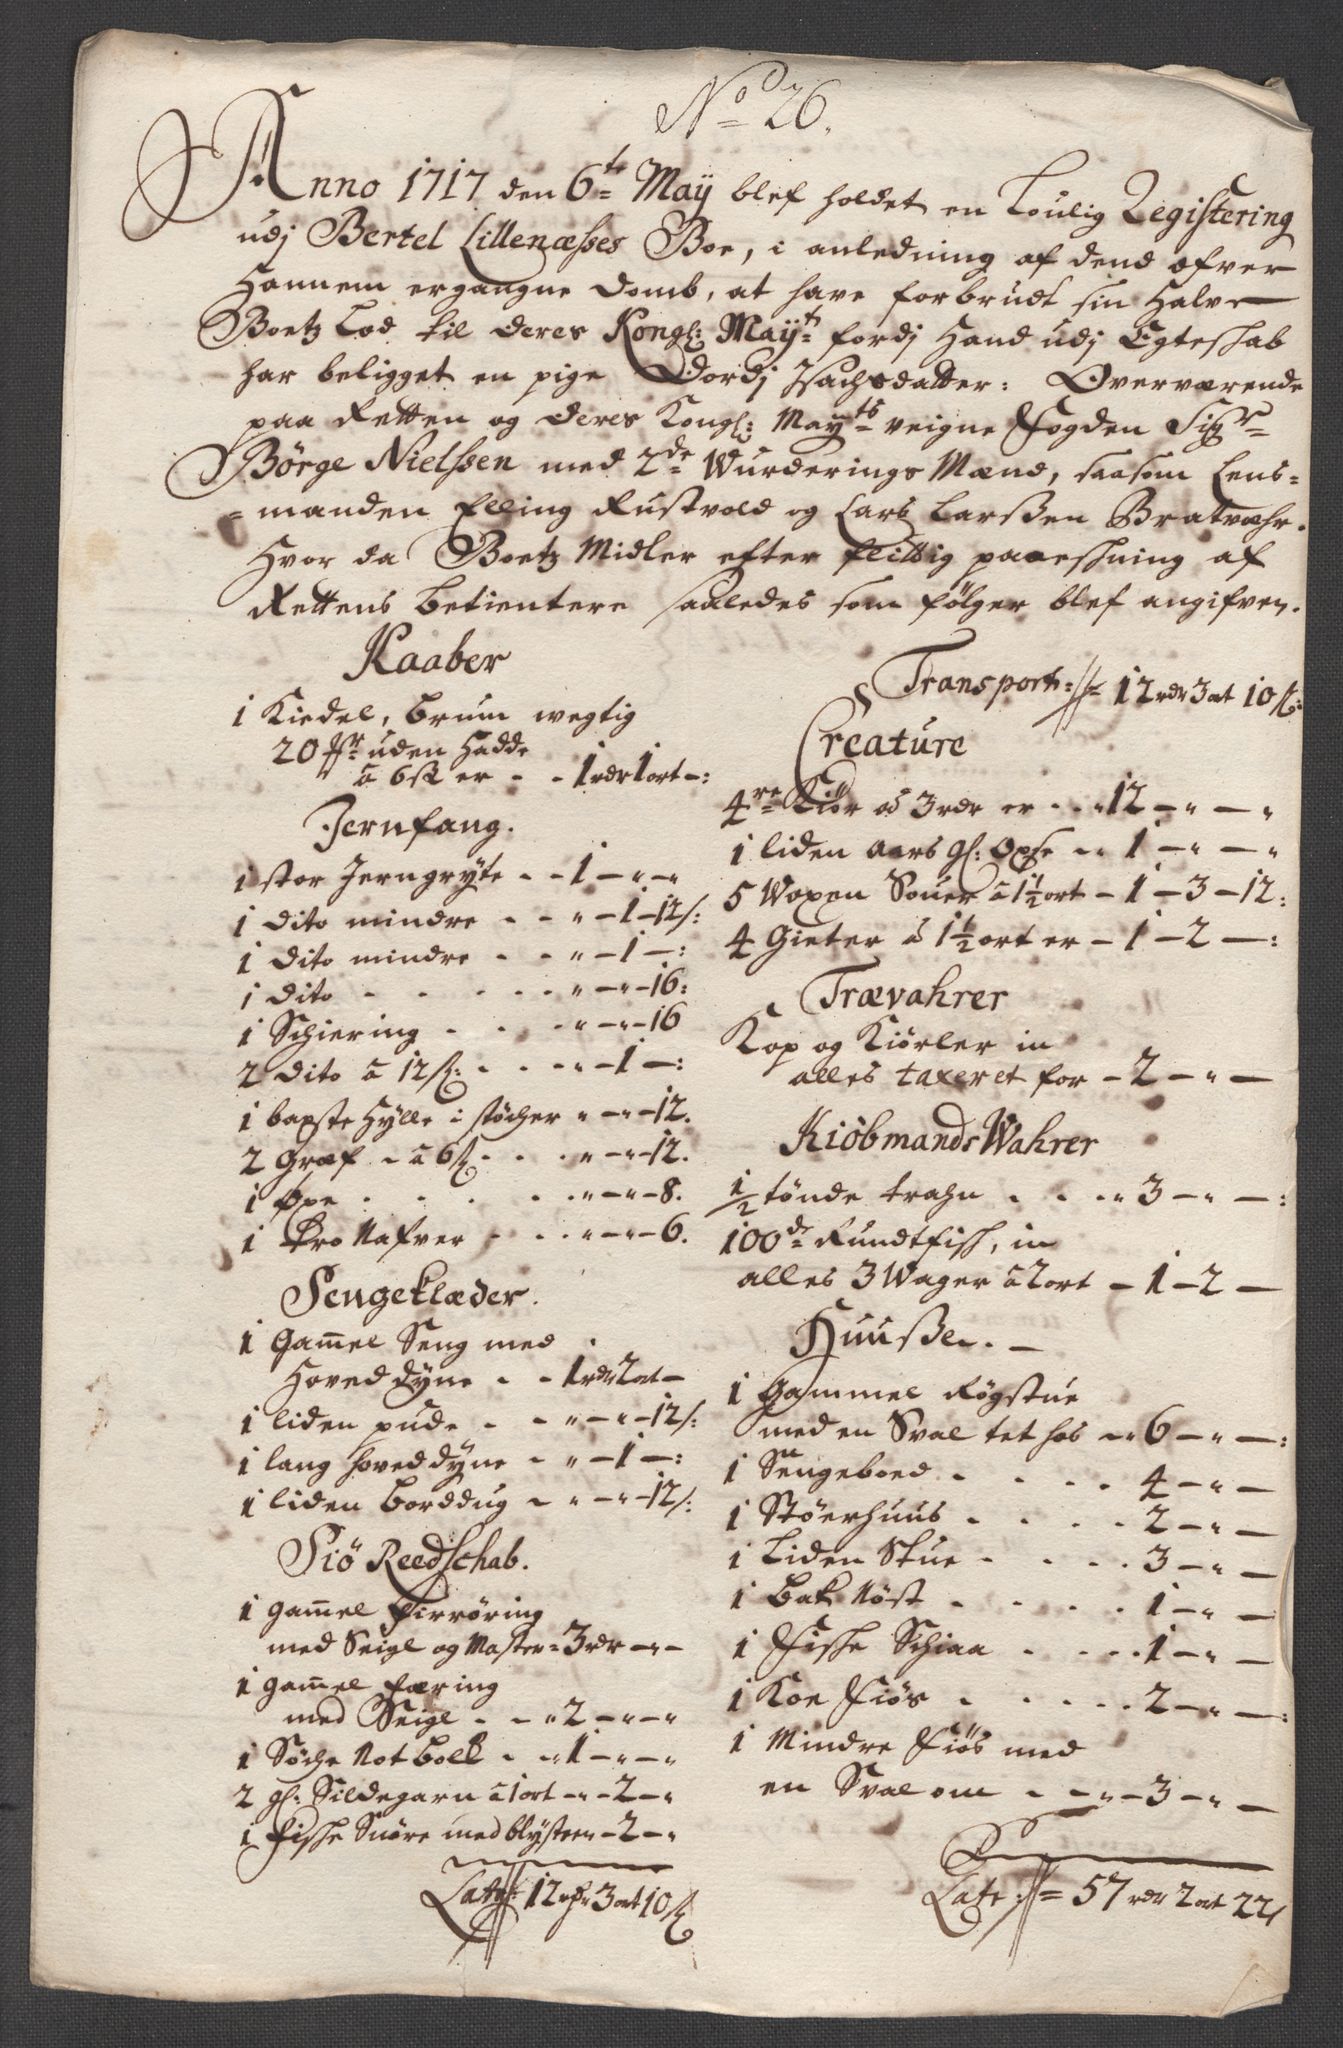 No 26.
Anno 1717 den 6te May blef holdet en Loulig Registering
udj Bertel Lillenæsses Boe, i anledning af dend ofver
Hannem ergangne Domb, at have forbrudt sin Halve
Boetz Lod til Deres Kongl: Mayt fordj Hand udj Egteskab
har beligget en pige Dordj Isachsdatter: Overværende
paa Retten og Deres Kongl: Mayts veigne Fogden Sigr
Börge Nielsen med 2de Wurderings Mænd, saasom Lens=
=manden Elling Rustvold og Lars Larssen Bratvæhr.
Hvor da Boetz Midler efter flittig paaeskning af
Rettens Betientere saaledes som fölger blef angifven.
Kaaber
1 Kiedel, brum wegtig
20 mr uden Hadde
a 6 sk er - - 1 rdr 1 ort -:
Jernfang.
1 stor Jerngryte - - 1 - " - "
1 dito mindre - - " - 1 - 12 s:
1 dito mindre - - " - 1 -:
1 dito - - - - " - " - 16:
1 Schiering - - - " - " - 16
2 dito a 12 s: - - - " - 1 -:
1 baxste Hylle i stöcher " - " - 12.
2 Græf - a 6 s - - - " - " - 12.
1 Öxe - - - - - " - " - 8.
1 Nafver - - - " - " - 6.
Sengeklæder.
1 Gammel Seng med
Hoved dyne - - 1 rdr 2 ort -
1 liden pude - - " - " - 12 s:
1 lang hoved dyne - " - 1 -:
1 liden borddug - " - " - 12 s:
Siö Reedschab.
1 gammel firröring
med Seigl og Master = 3 rdr - " -
1 gammel færing
med Seigl - - " 2 - " - "
1 Söche Not bolk - - " 1 - " - "
2 gl: Sildegarn a 1 ort - " - 2 - "
1 Fiske Snöre med blysteen - 2 - "
Late: 12 rdr 3 ort 10 s
Transport: = 12 rdr 3 ort 10 s:
Creature
4re Kiör ad 3 rdr er - - " 12 - " - "
1 liden aars gl: Oxse - " 1 - " - "
5 Woxen Souer a 1 1/2 ort - 1 - 3 - 12:
4 Gieter a 1 1/2 ort er - 1 - 2 -:
Trævahrer
Kop og Kiörler in
alles taxeret for - 2 - " -
Kiöbmands Wahrer
1/2 tönde trahn - - - " 3 - " -:
100de Rundtfish, in
alles 3 Wager a 2 ort - 1 - 2 -
Huusse. -
1 Gammel Rögstue
med en Sval tet hos - " 6 - " -:
1 Sengeboed - - - - 4 - " -
1 Stöerhuus - - - - 2 - " -
1 Liden Stue - - - - 3 - " -
1 Bak Nöst - - - - 1 - " -
1 Fiske Schiaa - - - - 1 - " -
1 Koe Fiös - - - - - 2 - " -:
1 Mindre Fiös med
en Sval om - - " - 3 - " -
Late: = 57 rdr 2 ort 22 s